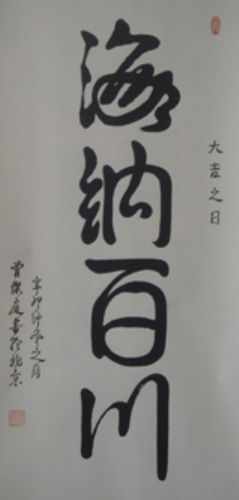 大吉之日
海纳百川
辛卯仲冬之月
书于北京